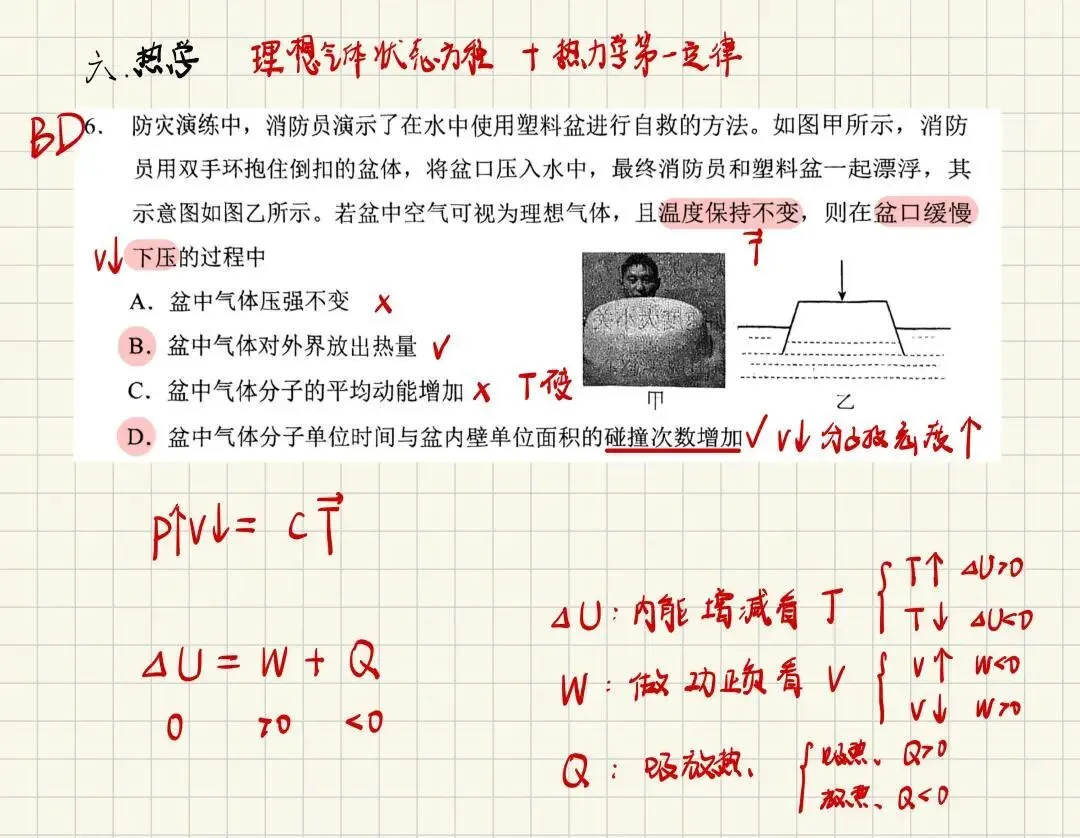 六.热学 理想气体状态方程 + 热力学第一定律
BD
6. 防灾演练中，消防员演示了在水中使用塑料盆进行自救的方法。如图甲所示，消防
员用双手环抱住倒扣的盆体，将盆口压入水中，最终消防员和塑料盆一起漂浮，其
示意图如图乙所示。若盆中空气可视为理想气体，且温度保持不变，则在盆口缓慢
V↓ 下压的过程中
T
A．盆中气体压强不变 ×
B．盆中气体对外界放出热量 ✓
C．盆中气体分子的平均动能增加 × T不变
甲 乙
D．盆中气体分子单位时间与盆内壁单位面积的碰撞次数增加 ✓ V↓ 分子数密度↑
P↑V↓= CT
ΔU = W + Q
0 >0 <0
ΔU：内能增减看 T
T↑ ΔU>0
T↓ ΔU<0
W：做功正负看 V
V↑ W<0
V↓ W>0
Q：吸放热、
吸热、Q>0
放热、Q<0